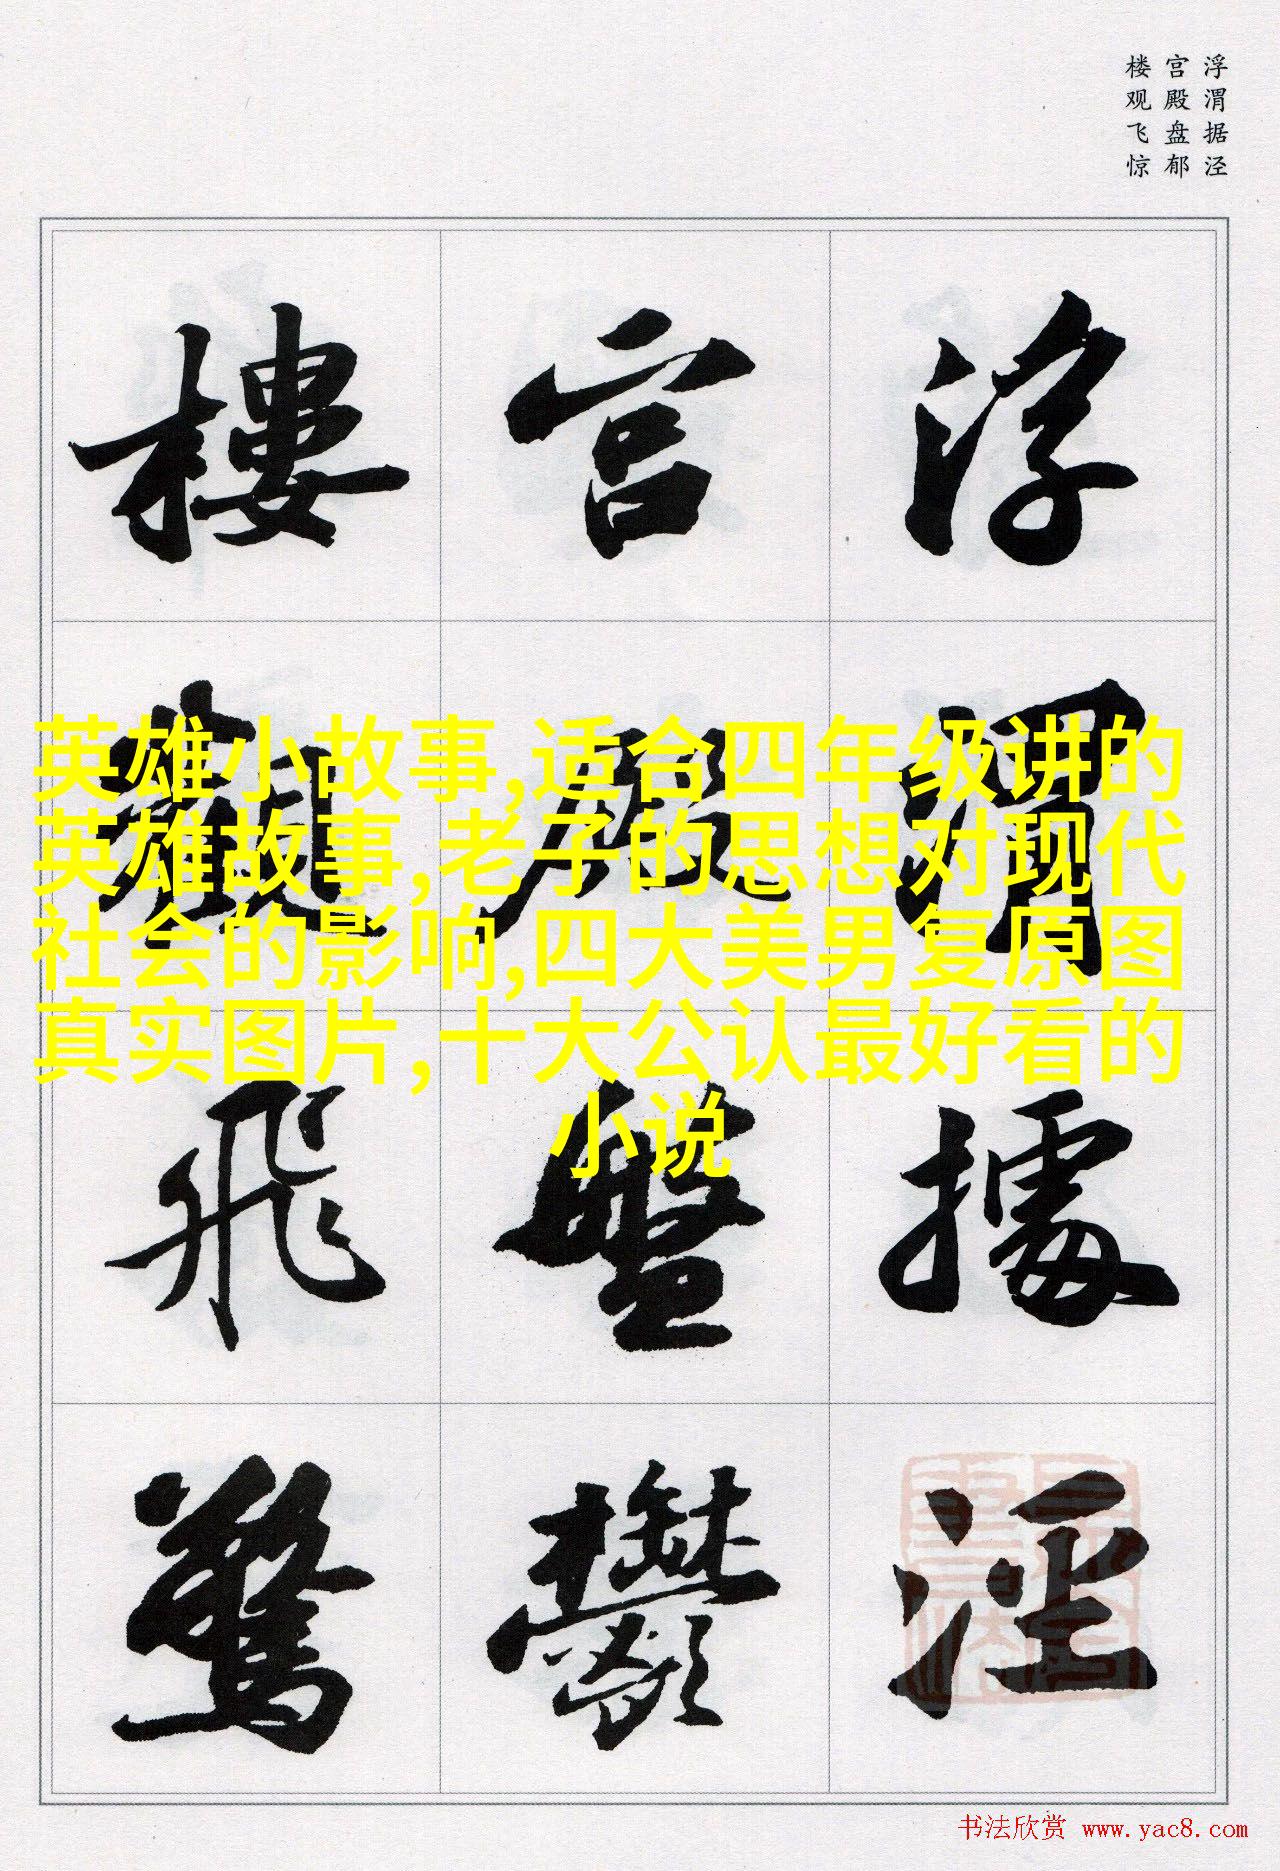 浮渭据泾
宫殿盘郁
楼观飞惊
浮渭據泾
宫殿盤鬱
樓觀飛驚
英雄小故事,适合四年级讲的
英雄故事,老子的思想对现代
社会的影响,四大美男复原图
真实图片,十大公认最好看的
小说
书法欣赏 www.yac8.com